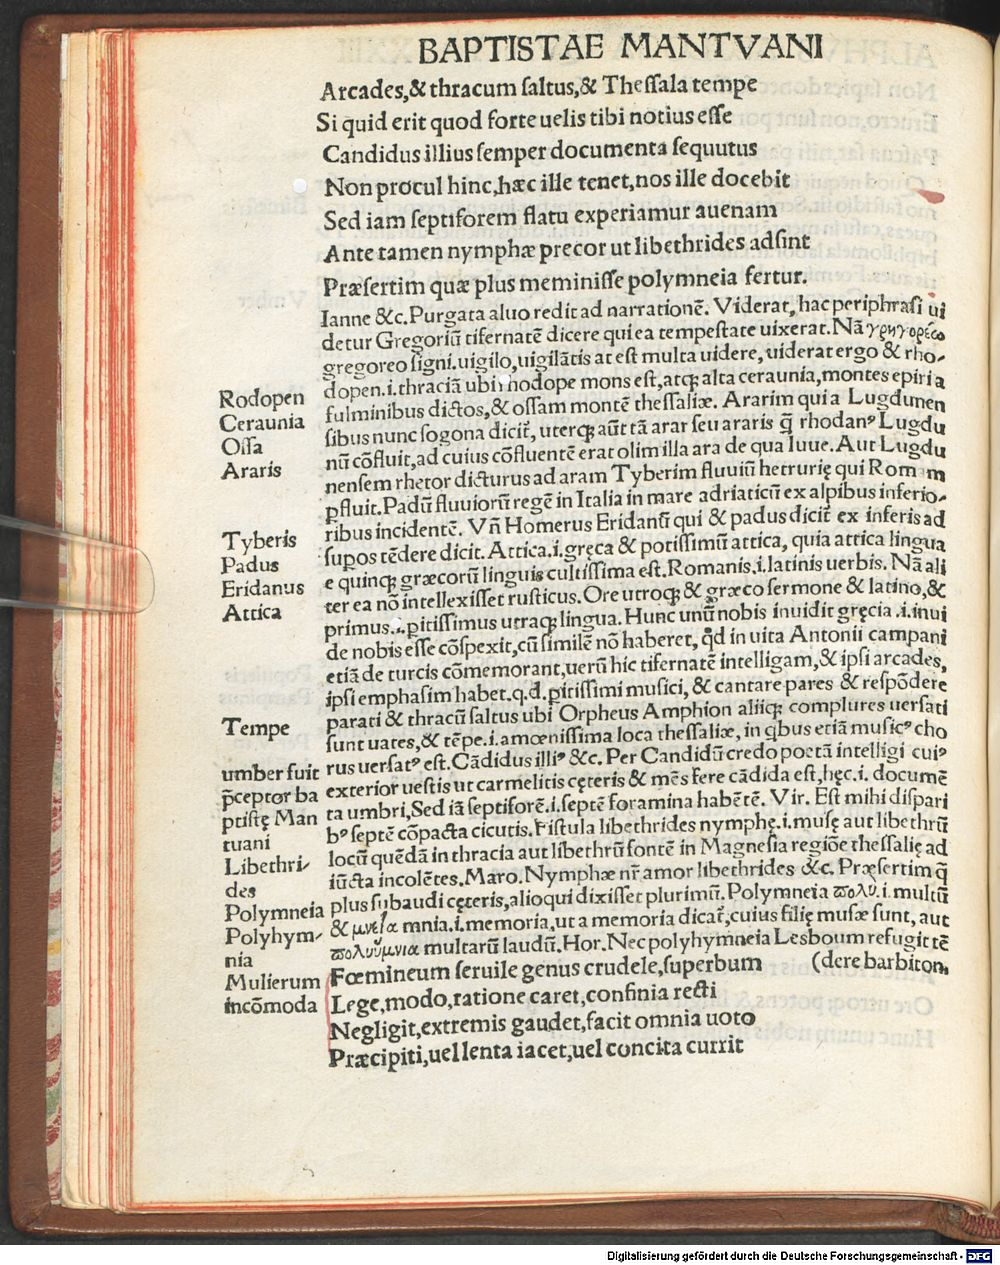 BAPTISTAE MANTVANI
Arcades,& thracum saltus,& Thessala tempe
Si quid erit quod forte uelis tibi notius esse
Candidus illius semper documenta sequutus
Non procul hinc,hæc ille tenet,nos ille docebit
Sed iam septiforem flatu experiamur auenam
Ante tamen nymphæ precor ut libethrides adsint
Præsertim quæ plus meminisse polymneia fertur.
Ianne &c.Purgata aluo redit ad narrationē. Viderat, hac periphrasi ui
detur Gregoriū tifernatē dicere qui ea tempestate uixerat.Nā γρηγορέω
gregoreo signi.uigilo,uigilātis at est multa uidere,uiderat ergo & rho-
Rodopen
dopen.i.thraciā ubi rhodope mons est,atq; alta ceraunia,montes epiri a
Ceraunia
fulminibus dictos,& ossam montē thessaliæ. Ararim qui a Lugdunen
Ossa
sibus nunc sogona dicit̄, uterq; aūt tā arar seu araris q̄ rhodanꝰ Lugdu
Araris
nū cōfluit,ad cuius cōfluentē erat olim illa ara de qua Iuue. Aut Lugdu
nensem rhetor dicturus ad aram Tyberim fluuiū hetrurię qui Romam
ꝑfluit.Padū fluuiorū regē in Italia in mare adriaticū ex alpibus inferio-
Tyberis
ribus incidentē. Vn̄ Homerus Eridanū qui & padus dicit̄ ex inferis ad
Padus
supos tēdere dicit. Attica.i.gręca & potissimū attica, quia attica lingua
Eridanus
e quinq; græcorū linguis cultissima est.Romanis.i.latinis uerbis. Nā ali
Attica
ter ea nō intellexisset rusticus. Ore utroq; & græco sermone & latino,&
primus.i.ꝑitissimus utraq; lingua. Hunc unū nobis inuidit gręcia .i.inui
de nobis esse cōspexit,cū similē nō haberet, qd̄ in uita Antonii campani
etiā de turcis cōmemorant,uerū hic tifernatē intelligam,& ipsi arcades,
ipsi emphasim habet.q.d.ꝑitissimi musici, & cantare pares & respōdere
Tempe
parati & thracū saltus ubi Orpheus Amphion aliiq; complures uersati
sunt uates,& tēpe.i.amœnissima loca thessaliæ, in qbus etiā musicꝰ cho
umber fuit
rus uersatꝰ est. Cādidus illiꝰ &c. Per Candidū credo poetā intelligi cuiꝰ
p̄ceptor ba
exterior uestis ut carmelitis cęteris & mēs fere cādida est,hęc.i. documē
ptistę Man
ta umbri,Sed iā septiforē.i.septē foramina habētē. Vir. Est mihi dispari
tuani
bꝰ septē cōpacta cicutis.Fistula libethrides nymphę.i.musę aut libethrū
Libethri-
locū quēdā in thracia aut libethrū fontē in Magnesia regiōe thessalię ad
des
iūcta incolētes.Maro.Nymphæ nr̄ amor libethrides &c. Præsertim q̄
Polymneia
plus subaudi cęteris,alioqui dixisset plurimū. Polymneia πολυ.i.multū
Polyhym-
& μνεία mnia.i.memoria,ut a memoria dicat̄,cuius filię musæ sunt, aut
nia
πολυΰμνια multarū laudū.Hor.Nec polyhymneia Lesboum refugit tē
Mulierum
Fœmineum seruile genus crudele,superbum (dere barbiton,
incōmoda
Lege,modo,ratione caret,confinia recti
Negligit,extremis gaudet,facit omnia uoto
Præcipiti,uel lenta iacet,uel concita currit
Digitalisierung gefördert durch die Deutsche Forschungsgemeinschaft - DFG